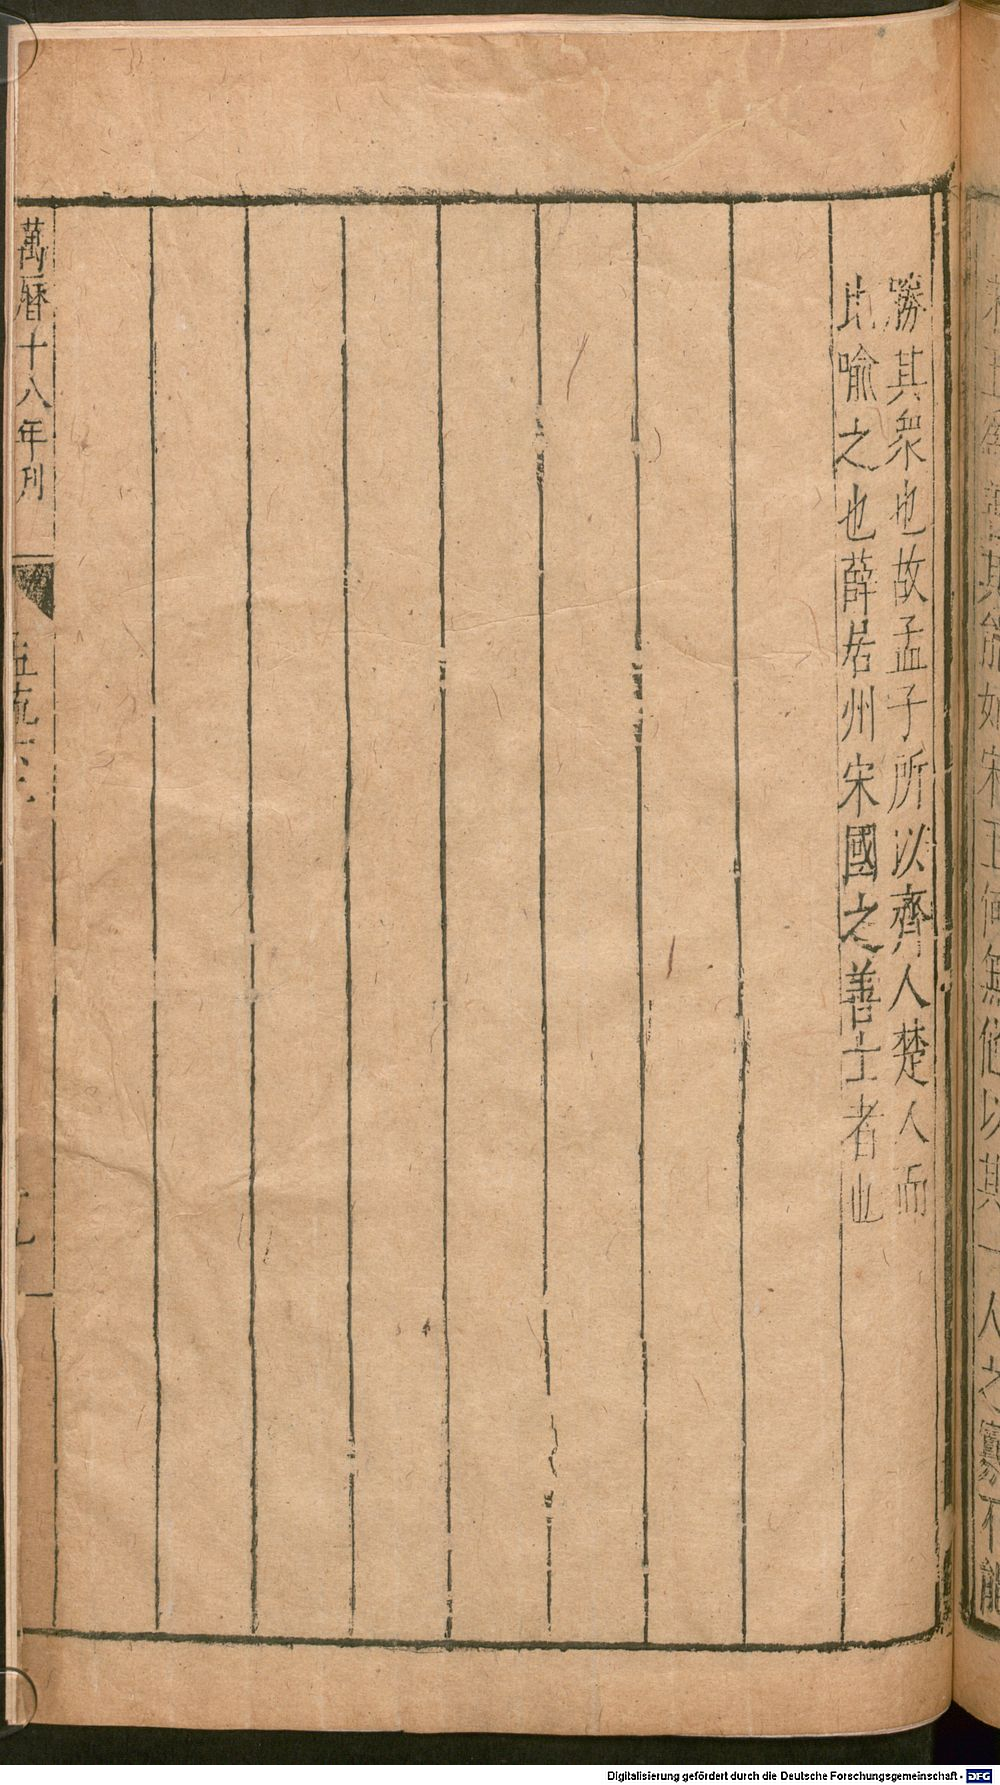 寡王為善其能如宋王何無他以其一人之寡不能
勝其衆也故孟子所以齊人楚人而
比喻之也薛居州宋國之善士者也
萬曆十八年刊
Digitalisierung gefördert durch die Deutsche Forschungsgemeinschaft - DFG